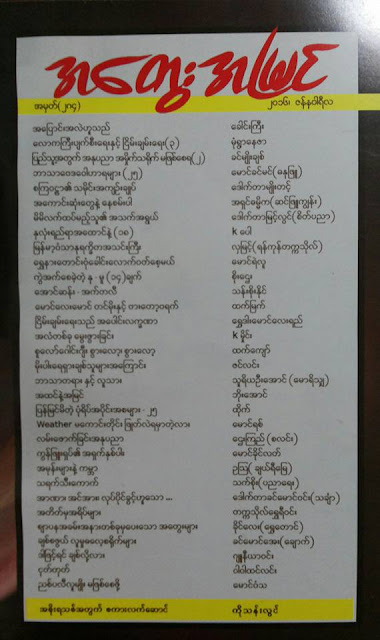 အတွေးအမြင်
အမှတ်(၂၈၄) ၂၀၁၆၊ ဇန်နဝါရီလ
အပြောင်းအလဲဟူသည် ခေါင်းကြီး
လောကကြီးပျက်စီးရေးနှင့် ငြိမ်းချမ်းရေး(၃) မုံရွာနေဇာ
ပြည်သူ့အတွက် အနုပညာ အမှိုက်သရိုက် မဖြစ်စေရ(၂) ခင်မျိုးချစ်
ဘာသာဝေဒဝေါဟာရများ (၂၅) မောင်ခင်မင်(ဓနုဖြူ)
စကြဝဠာ၏ သမိုင်းအကျဉ်းချုပ် ဒေါက်တာမျိုးတင့်
အကောင်းဆုံးတွေနဲ့ နေစမ်းပါ အရှင်ဓမ္မိက(ဆင်ဖြူကျွန်း)
မိမိလက်ထပ်မည့်သူ၏ အသက်အရွယ် ဒေါက်တာမြင့်လွင်(စိတ်ပညာ)
နှလုံးရည်ဆရာအထောင်နဲ့ (၁၈) k ပေါ
မြန်မာ့ဝံသာနုရက္ခိတအသင်းကြီး လှမြင့်(ရန်ကုန်တက္ကသိုလ်)
ရွှေနားတောင်းဝံ့ခေါင်းလောက်ဝတ်စေ့မယ် မောင်ရဲလူ
ကွဲအက်စေခဲ့တဲ့ န - မှု (၁၄)ချက် စိုးဌေး
အောင်ဆန်း - အက်တလီ သန်းစိုးနိုင်
မောင်လေးမောင် တင်မိုးနှင့် တတော့ဝရက် ထက်မြက်
ငြိမ်းချမ်းရေးသည် အပေါင်းလက္ခဏာ ရွှေဒါးမောင်လေးရည်
အလံတစ်ခု မွေးဖွားခြင်း k မှိုင်း
စူလော်ဂေါင်းဂျီး စွားလော့ စွားလော့ ထက်ကျော်
မိုးပါးရေရှားချစ်သူများအကြောင်း ဇင်လင်း
ဘာသာတရား နှင့် လူသား သူရိယဦးအောင် (မောရိသျှ)
အထင်နဲ့အမြင် ဘိုးအောင်
ပြန်မြင်မိတဲ့ ပုံရိပ်အပိုင်းအစများ - ၂၅ ထိုက်
Weather မကောင်းတိုင်း ဖြုတ်လဲရမှာတဲ့လား မောင်ရစ်
လမ်းဖောက်ခြင်းအနုပညာ ဌေးကြည် (စလင်း)
ကွန်ဖြူးရှပ်၏ အရှက်နှစ်ပါး မောင်ခိုင်လတ်
အမှန်းများနဲ့ ကမ္ဘာ ဥဩ( ချယ်ရီမြေ)
သရက်သီးကောက် သက်စိုး(ပညာရေး)
အာဏာ၊ အင်အား၊ လုပ်ပိုင်ခွင့်ဟူသော ... ဒေါက်တာခင်မောင်ဝင်း(သင်္ချာ)
အတိတ်မှအရိပ်များ တက္ကသိုလ်ရွှေရီဝင်း
ဈာပနအခမ်းအနားတစ်ခုမှပေးသော အတွေးများ ခိုင်လေး(ရွှေတောင်)
ချစ်စဖွယ် လူမှုဓလေ့စရိုက်များ ခင်မောင်အေး(ချောက်)
ဒါဖြင့်ရင် ချစ်လို့လား ဂျူနီယာဝင်း
ငုတ်တုတ် ပါပါထင်လင်း
ညစ်ပလီလူမျိုး မဖြစ်စေဖို့ မောင်ဝံသ
အစိုးရသစ်အတွက် စကားလက်ဆောင် ကိုသန်းလွင်